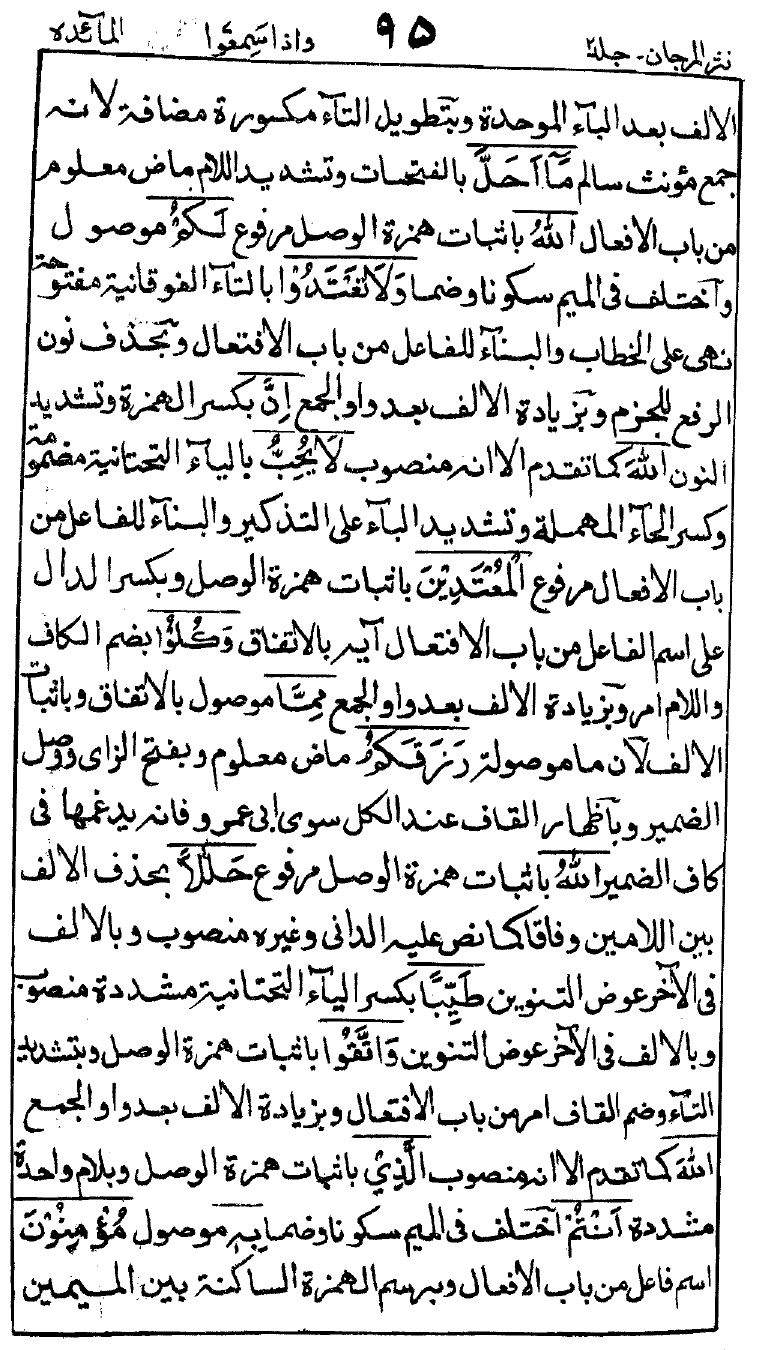 نثر المرجان - جلد ٢ ٩٥ واذا سَمِعُوا المآئده
الالف بعد البآء الموحدة وبتطويل التآء مكسورة مضافة لانه
جمع مؤنث سالم مَآ اَحَلَّ بالفتحات وتشديد اللام ماض معلوم
من باب الافعال اللهُ باثبات همزة الوصل مرفوع لَكُمْ موصول
واختلف فى الميم سكونا وضما وَلَا تَعْتَدُوْا بالتآء الفوقانية مفتوحة
نهى على الخطاب والبنآء للفاعل من باب الافتعال وبحذف نون
الرفع للجزم وبزيادة الالف بعد واو الجمع اِنَّ بكسر الهمزة وتشديد
النون اللهَ كما تقدم الا انه منصوب لَا يُحِبُّ باليآء التحتانية مضمومة
وكسر الحآء المهملة وتشديد البآء على التذكير والبنآء للفاعل من
باب الافعال مرفوع الْمُعْتَدِيْنَ باثبات همزة الوصل وبكسر الدال
على اسم الفاعل من باب الافتعال آيه بالاتفاق وَكُلُوْا بضم الكاف
واللام امر وبزيادة الالف بعد واو الجمع مِمَّا موصول بالاتفاق وباثبات
الالف لان ما موصولة رَزَقَكُمْ ماض معلوم وبفتح الزاى ووصل
الضمير وباظهار القاف عند الكل سوى ابى عمرو فانه يدغمها فى
كاف الضمير اللهُ باثبات همزة الوصل مرفوع حَلٰلًا بحذف الالف
بين اللامين وفاقا كما نص عليه الدانى وغيره منصوب وبالالف
فى الآخر عوض التنوين طَيِّبًا بكسر اليآء التحتانية مشددة منصوب
وبالالف فى الآخر عوض التنوين وَاتَّقُوْا باثبات همزة الوصل وبتشديد
التآء وضم القاف امر من باب الافتعال وبزيادة الالف بعد واو الجمع
اللهَ كما تقدم الا انه منصوب الَّذِيْ باثبات همزة الوصل وبلام واحدة
مشددة اَنْتُمْ اختلف فى الميم سكونا وضما بِهٖ موصول مُؤْمِنُوْنَ
اسم فاعل من باب الافعال وبرسم الهمزة الساكنة بين الميمين